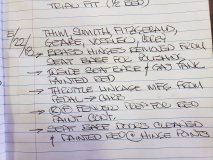 TRIAL FIT (½ RED)
5/22/18
THIM, SMITH, FITZGERALD,
→ BRAKE HINGES REMOVED FROM
SEAT BASE FOR POLISHING
→ INSIDE SEAT BASE & GAS TANK
PAINTED RED
→ THROTTLE LINKAGE MFG. FROM
PEDAL → CARB
→ PREP FOR RED
PAINT CONT.
→ SEAT BASE DOORS CLEANED
& PAINTED RED @ HINGE POINTS